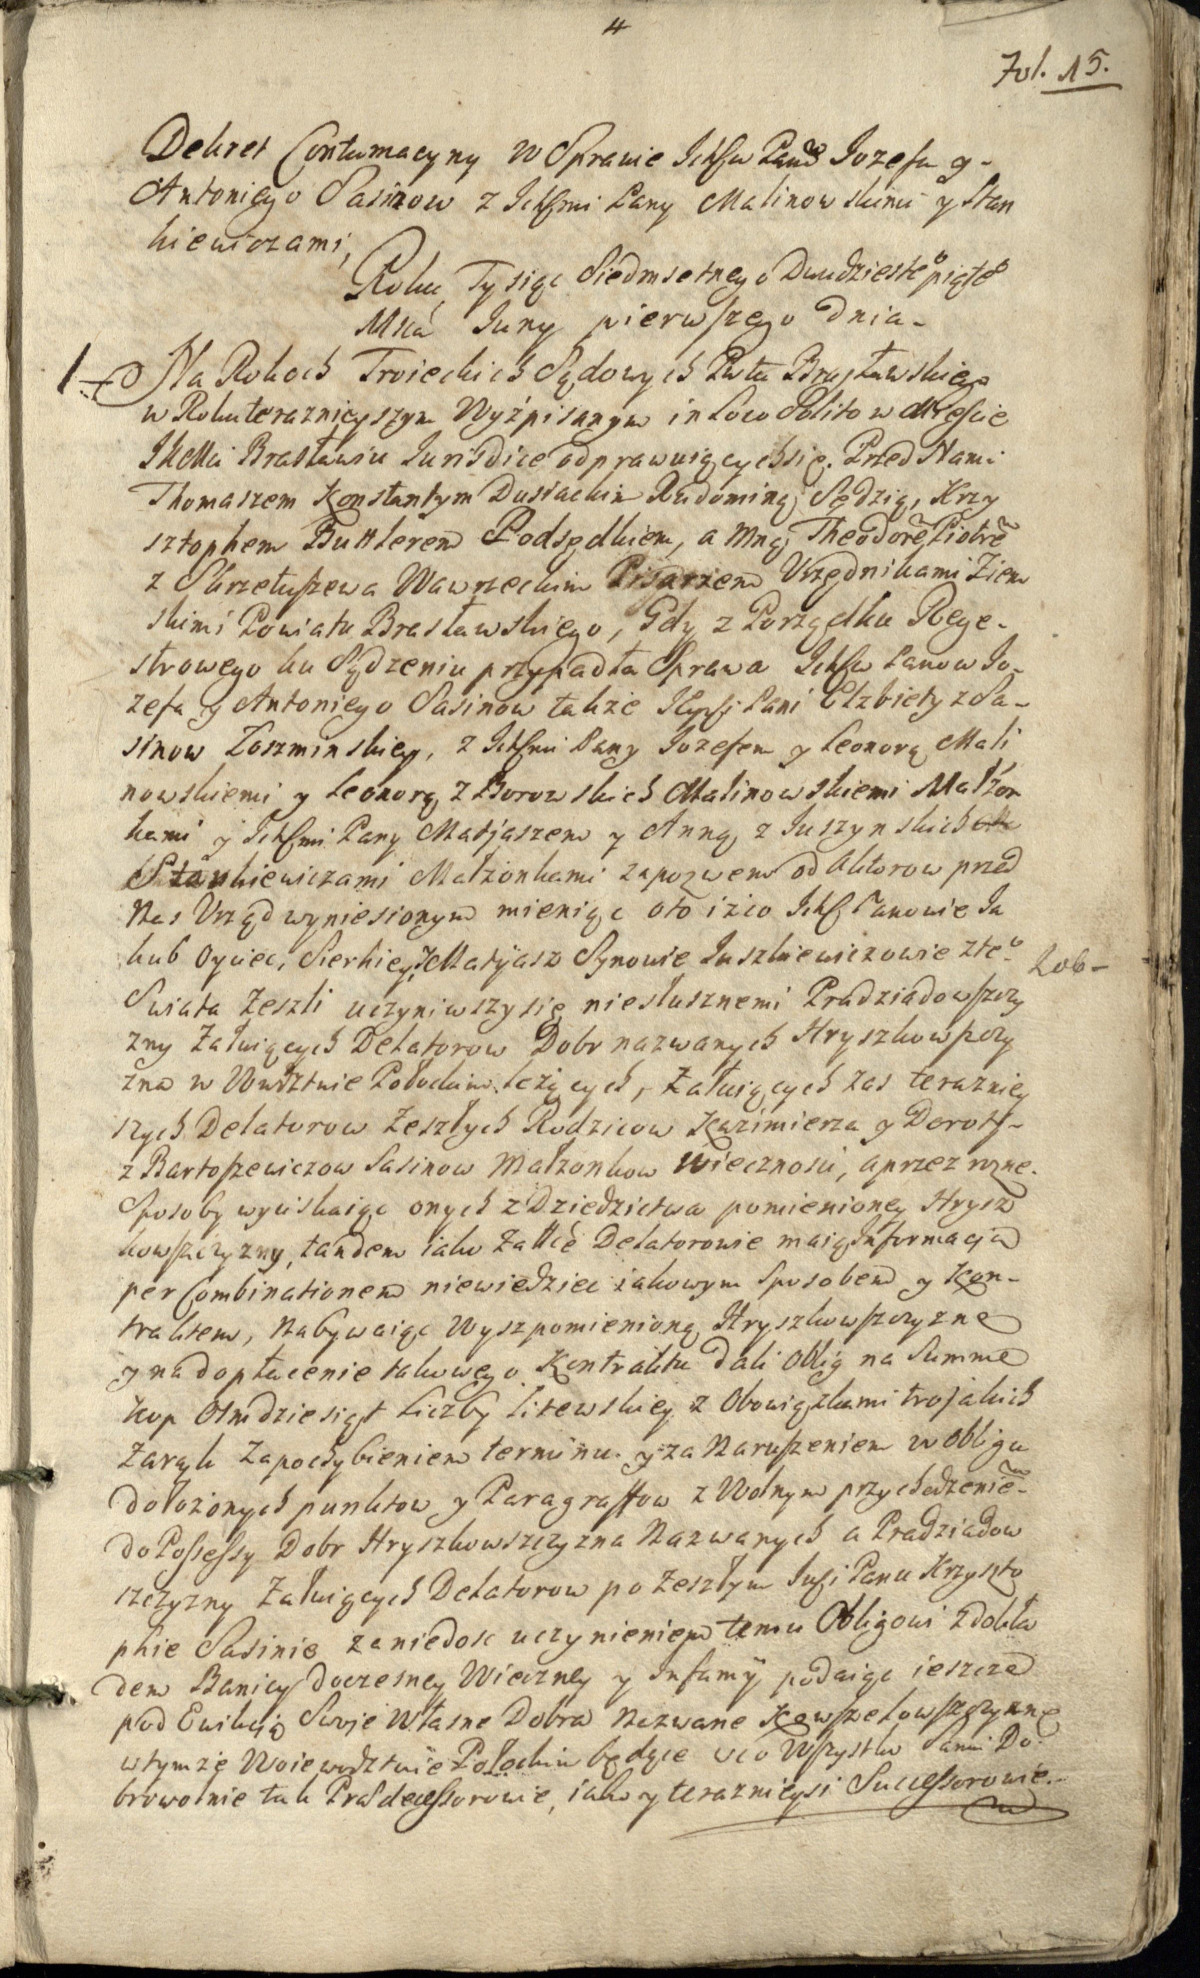 4
Fol. 15.
Dekret Contumacyny w Sprawie Ichm Panów Jozefa y
Antoniego Sasinow z Ichmi Pany Malinowskimi y Stan
kiewiczami,
Roku Tysiąc Siedmsetnego Dwudzieste° piąte°
Mca Juny pierwszego dnia -
1 Na Rokach Troieckich Sądowych Pwtu Brasławskiego
w Roku teraznieyszym Wyżpisanym in loco solito w Mieście
JKMci Brasławiu Jurisdice odprawuiących się. Przed Nami
Thomaszem Konstantym Dusiackim Rudominą Sędzią, Krzy
sztophem Buttlerem Podsędkiem, a Mną Theodorē Piotrē
z Skrzetuszewa Wawrzeckim Pisarzem Urzędnikami Ziem
skimi Powiatu Brasławskiego, Gdy z Porządku Rege-
strowego ku Sądzeniu przypadła Sprawa Ichm Panow Jo-
zefa y Antoniego Sasinow także Pani Elzbiety z Sa-
sinow Zoszminskiey, z Ichmi Pany Jozefem y Leonorą Mali
nowskiemi y Leonorą z Borowskich Malinowskiemi Małżon
kami y Ichmi Pany Matjaszem y Anną z Juszynskich
Stankiewiczami Małżonkami zapozwem od Aktorow przed
Nas Urząd wyniesionym mieniąc oto iżco Ichm Panowie Ja
kub Oyciec, Sierhiey, y Matyasz Synowie Juszkiewiczowie z te°
Swiata Zeszli uczyniwszy się niesłusznemi Pradziadowszczy
zny Załuiących Delatorow Dobr nazwanych Hryszkowszczy
zna w Wwdztwie Połockim leżących, Załuiących zas terazniey
szych Delatorow Zeszłych Rodzicow Kazimierza y Doroty-
z Bartoszewiczow Sasinow Małzonkow Wiecznosci, a przez rozne
Sposoby wyciskaiąc onych z Dziedzictwa pomienioney Hrysz
kowszczyzny, tandem iako Delatorowie maią Informacja
per Combinationem niewiedziec iakowym Sposobem y Kon-
traktem, Nabywaiąc Wyszpomienioną Hryszkowszczyzne
y na dopłacenie takowego Kontraktu dali Oblig na Summe
kop Osmdziesiąt Liczby Litewskiey z Obowiązkami trojakich
Zaręk Zapochybieniem terminu y za Naruszeniem w Obligu
dołożonych punktow y Paragraffow z Wolnym przychodzenie-
do Possessy Dobr Hryszkowszczyzna Nazwanych a Pradziadow
szczyzny Załuiących Delatorow po Zeszłym Panu Krzyszto
phie Sasinie zaniedosc uczynieniem temu Obligowi z dokła
dem Banicy doczesney Wieczney y Infamÿ podaiąc ieszcze
pod Ewikcią Swoje Własne Dobra Nazwane
w tymze Woiewodztwie Połockim będące uco Wszystko Sami Do
browolnie tak Praedecessorowie, iako y teraznieysi Successorowie.-